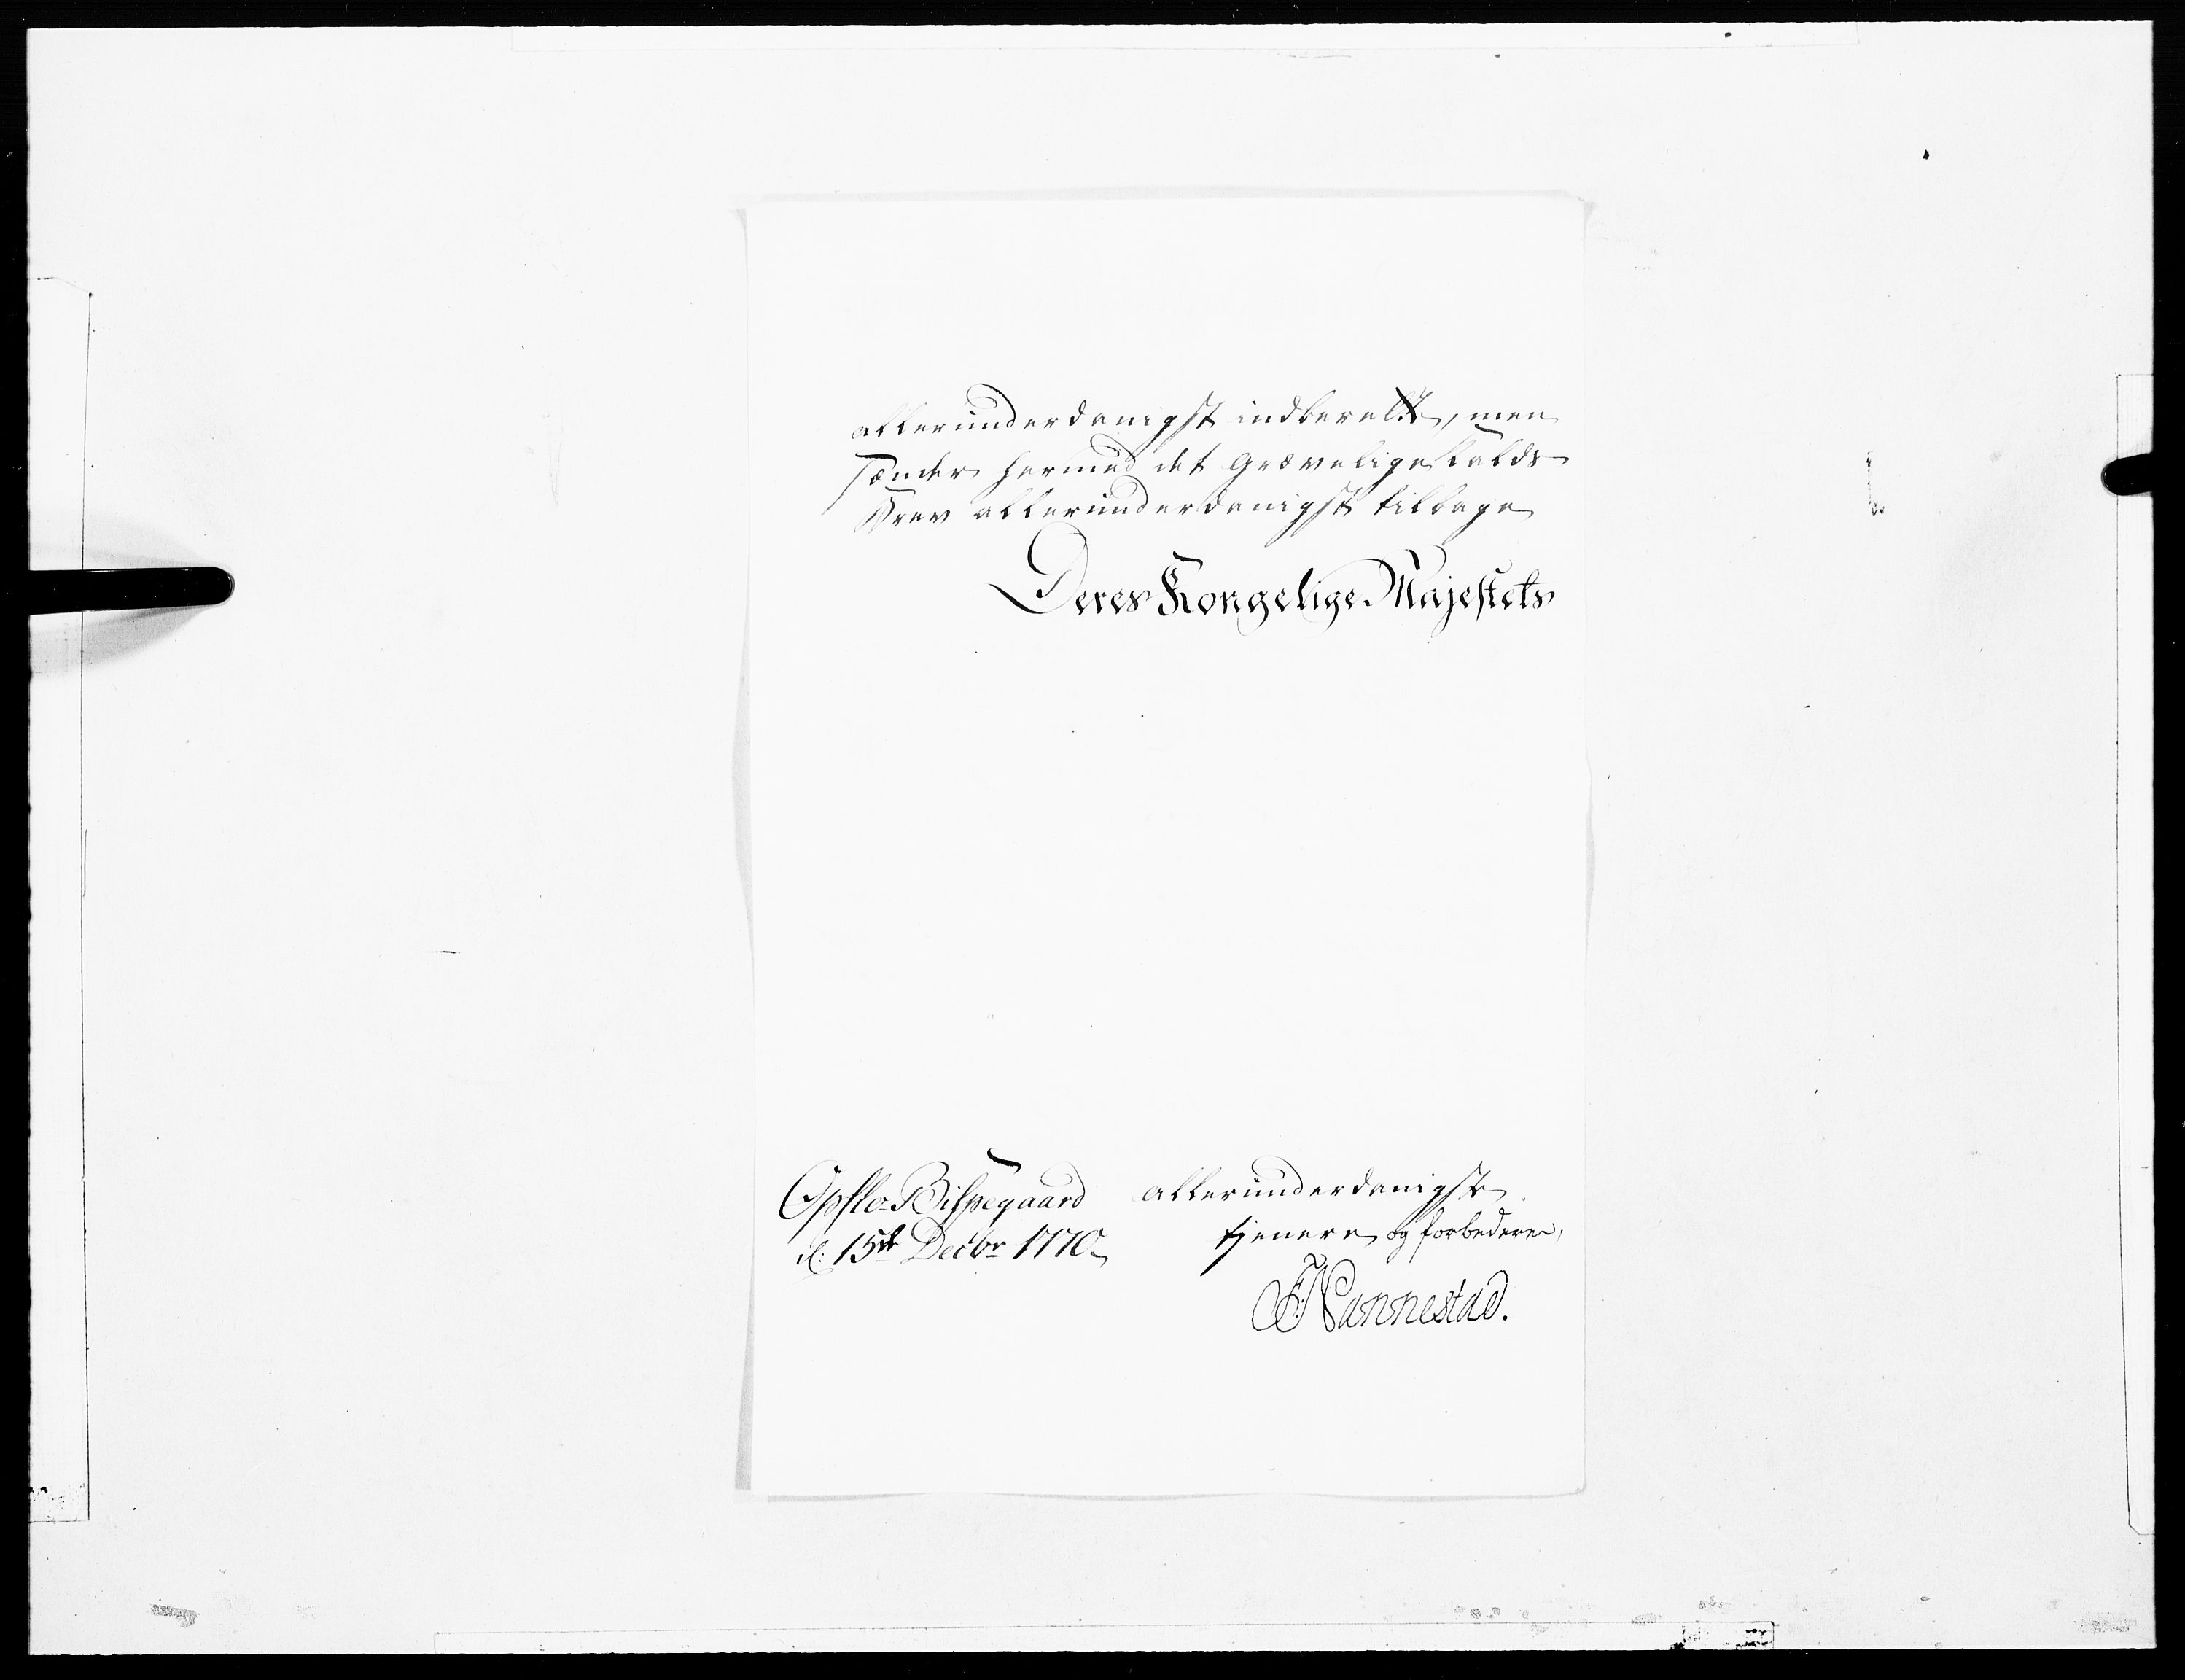 allerunderdanigst indberette, men
sender hermed det Grævelige Kalds-
Brev allerunderdanigst tilbage
Deres Kongelige Majestets
Opslo-Bispegaard
d: 15de Decbr 1770
allerunderdanigste
tjenere og forbedere,
F. Nannestad.